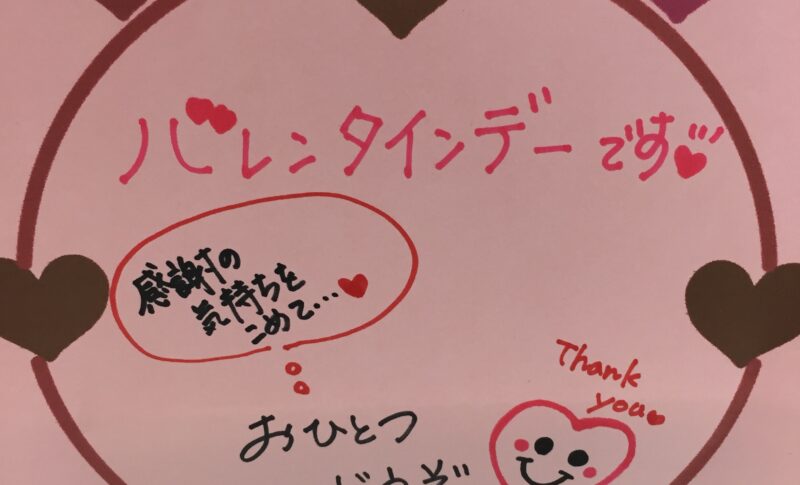 バレンタインデーです
感謝の
気持ちを
こめて…
Thank
you
おひとつ
どうぞ